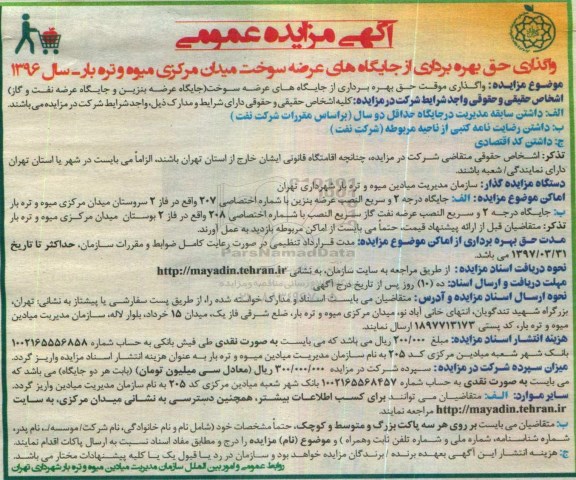 آگهی مزایده عمومی
واگذاری حق بهره برداری از جایگاه های عرضه سوخت میدان مرکزی میوه و تره بار - سال ۱۳۹۶
موضوع مزایده: واگذاری موقت حق بهره برداری از جایگاه های عرضه سوخت(جایگاه عرضه بنزین و جایگاه عرضه نفت و گاز)
اشخاص حقیقی و حقوقی واجد شرایط شرکت در مزایده: کلیه اشخاص حقیقی و حقوقی دارای شرایط و مدارک ذیل، واجد شرایط شرکت در مزایده می باشند.
الف: داشتن سابقه مدیریت در جایگاه حداقل دو سال (براساس مقررات شرکت نفت)
ب: داشتن رضایت نامه کتبی از ناحیه مربوطه (شرکت نفت)
ج: داشتن کد اقتصادی
تذکر: اشخاص حقوقی متقاضی شرکت در مزایده، چنانچه اقامتگاه قانونی ایشان خارج از استان تهران باشند، الزاماً می بایست در شهر یا استان تهران
دارای نمایندگی/ شعبه باشند.
دستگاه مزایده گذار: سازمان مدیریت میادین میوه و تره بار شهرداری تهران
اماکن موضوع مزایده: الف: جایگاه درجه ۲ و سریع النصب عرضه بنزین با شماره اختصاصی ۲۰۷ واقع در فاز ۲ سروستان میدان مرکزی میوه و تره بار
ب: جایگاه درجه ۲ و سریع النصب عرضه نفت گاز سریع النصب با شماره اختصاصی ۲۰۸ واقع در فاز ۲ بوستان میدان مرکزی میوه و تره بار
تذکر: متقاضیان قبل از ارائه پیشنهاد قیمت حتماً می بایست از اماکن مربوطه بازدید به عمل آورند.
مدت حق بهره برداری از اماکن موضوع مزایده: مدت قرارداد تنظیمی در صورت رعایت کامل ضوابط و مقررات سازمان، حداکثر تا تاریخ
۱۳۹۷/۰۳/۳۱ می باشد.
نحوه دریافت اسناد مزایده: از طریق مراجعه به سایت سازمان، به نشانی http://mayadin.tehran.ir
مهلت دریافت و ارسال اسناد: ده (۱۰) روز پس از تاریخ درج آگهی
نحوه ارسال اسناد مزایده و آدرس: متقاضیان می بایست اسناد و مدارک خواسته شده را، از طریق پست سفارشی یا پیشتاز به نشانی: تهران،
بزرگراه شهید تندگویان، انتهای خانی آباد نو، میدان مرکزی میوه و تره بار، ضلع شرقی فاز یک، میدان ۱۵ خرداد، بلوار لاله، سازمان مدیریت میادین
میوه و تره بار، کد پستی ۱۸۹۷۷۱۳۱۷۳ ارسال نمایند.
هزینه انتشار اسناد مزایده: مبلغ ۲۰۰/۰۰۰ ریال می باشد که می بایست به صورت نقدی طی فیش بانکی به حساب شماره ۱۰۰۲۱۶۵۵۵۶۸۵۸
بانک شهر شعبه میادین مرکزی کد ۲۰۵ به نام سازمان مدیریت میادین میوه و تره بار به عنوان هزینه انتشار اسناد مزایده واریز گردد.
میزان سپرده شرکت در مزایده: سپرده شرکت در مزایده ۳۰۰/۰۰۰/۰۰۰ ریال (معادل سی میلیون تومان) (بابت هر دو جایگاه) می باشد که
می بایست به صورت نقدی به حساب شماره ۱۰۰۲۱۶۵۵۶۸۴۵۷ بانک شهر شعبه میادین مرکزی کد ۲۰۵ به نام سازمان مدیریت میادین واریز گردد.
سایر موارد: الف: متقاضیان می توانند برای کسب اطلاعات بیشتر، همچنین دسترسی به نشانی میدان مرکزی، به سایت
http://mayadin.tehran.ir مراجعه نمایند.
ب: متقاضیان می بایست بر روی هر سه پاکت بزرگ و متوسط و کوچک، حتماً مشخصات خود (شامل نام و نام خانوادگی، نام شرکت/موسسه/، نام پدر،
شماره شناسنامه، شماره ملی و شماره تلفن ثابت وهمراه) و موضوع (نام) مزایده را درج و مطابق مفاد اسناد نسبت به ارسال پاکات اقدام نمایند.
ج: هزینه انتشار این آگهی بعهده برنده / برندگان مزایده خواهد بود و سازمان در رد یا قبول یک یا کلیه پیشنهادات مختار می باشد.
روابط عمومی و امور بین الملل سازمان مدیریت میادین میوه و تره بار شهرداری تهران